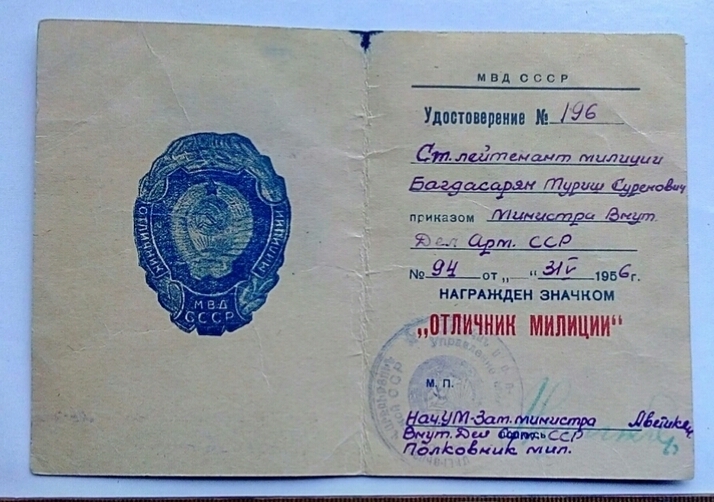 ОТЛИЧНИК МИЛИЦИИ
МВД
СССР
МВД СССР
Удостоверение № 196
Ст. лейтенант милиции
Багдасарян Туриш Суренович
приказом Министра Внут.
Дел Арт. ССР
№ 94 от „ “ 31/V 1956г.
НАГРАЖДЕН ЗНАЧКОМ
„ОТЛИЧНИК МИЛИЦИИ“
М. П.
Нач.УМ-Зам.министра Аветикян
Внут. Дел ССР
Полковник мил.